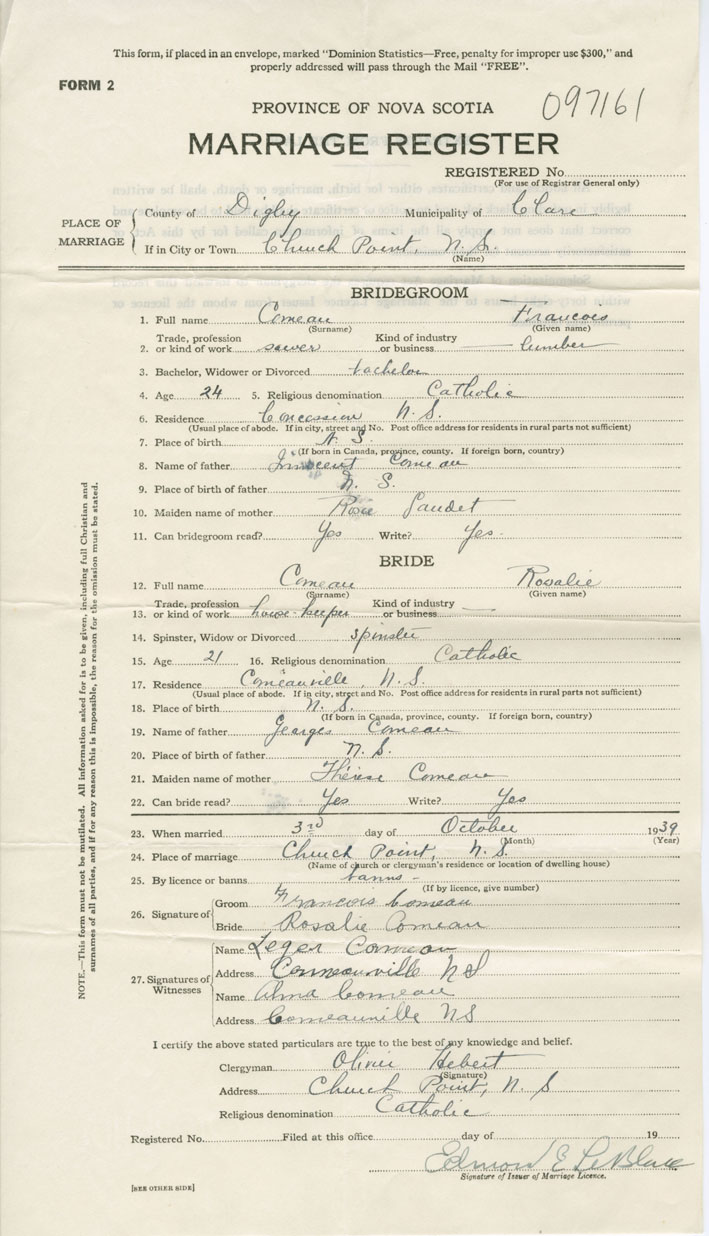 This form, if placed in an envelope, marked "Dominion Statistics—Free, penalty for improper use $300," and
properly addressed will pass through the Mail "FREE".
FORM 2
097161
PROVINCE OF NOVA SCOTIA
MARRIAGE REGISTER
REGISTERED No.
(For use of Registrar General only)
PLACE OF MARRIAGE
County of Digby Municipality of Clare
If in City or Town Church Point, N. S.
(Name)
BRIDEGROOM
1. Full name Comeau Francois
(Surname) (Given name)
2. Trade, profession or kind of work sawer Kind of industry or business lumber
3. Bachelor, Widower or Divorced bachelor
4. Age 24 5. Religious denomination Catholic
6. Residence Concession N. S.
(Usual place of abode. If in city, street and No. Post office address for residents in rural parts not sufficient)
7. Place of birth N. S.
(If born in Canada, province, county. If foreign born, country)
8. Name of father Innocent Comeau
9. Place of birth of father N. S.
10. Maiden name of mother Rosie Gaudet
11. Can bridegroom read? Yes Write? Yes.
BRIDE
12. Full name Comeau Rosalie
(Surname) (Given name)
13. Trade, profession or kind of work house-keeper Kind of industry or business —
14. Spinster, Widow or Divorced spinster
15. Age 21 16. Religious denomination Catholic
17. Residence Comeauville, N. S.
(Usual place of abode. If in city, street and No. Post office address for residents in rural parts not sufficient)
18. Place of birth N. S.
(If born in Canada, province, county. If foreign born, country)
19. Name of father Georges Comeau
20. Place of birth of father N. S.
21. Maiden name of mother Thérèse Comeau
22. Can bride read? Yes Write? Yes
23. When married 3rd day of October 1939
(Month) (Year)
24. Place of marriage Church Point, N. S.
(Name of church or clergyman's residence or location of dwelling house)
25. By licence or banns banns -
(If by licence, give number)
26. Signature of
Groom Francois Comeau
Bride Rosalie Comeau
27. Signatures of Witnesses
Name Leger Comeau
Address Commeauville NS
Name Alma Comeau
Address Comeauville NS
I certify the above stated particulars are true to the best of my knowledge and belief.
Clergyman Olivier Hebert
(Signature)
Address Church Point, N. S
Religious denomination Catholic
Registered No. Filed at this office day of 19
Edmond E LeBlanc
Signature of Issuer of Marriage Licence.
[SEE OTHER SIDE]
NOTE.—This form must not be mutilated. All information asked for is to be given, including full Christian and
surnames of all parties, and if for any reason this is impossible, the reason for the omission must be stated.